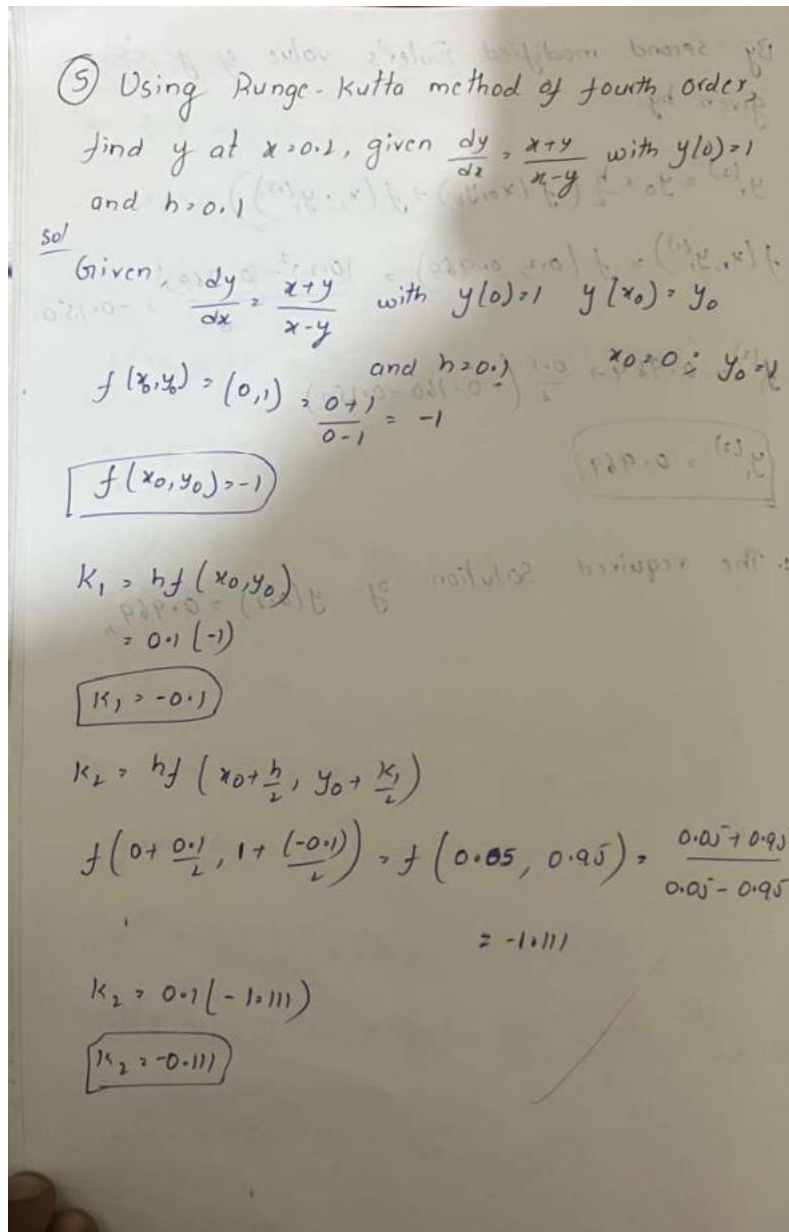 ⑤ Using Runge-Kutta method of fourth order,
find y at x=0.1, given dy/dx = x+y/x-y with y(0)=1
and h=0.1
sol
Given, dy/dx = x+y/x-y with y(0)=1 y(x0)=y0
and h=0.1 x0=0; y0=1
f(x0,y0) = (0,1) = 0+1/0-1 = -1
f(x0,y0)=-1
K1 = hf(x0,y0)
= 0.1(-1)
K1 = -0.1
K2 = hf(x0+h/2, y0+K1/2)
f(0+0.1/2, 1+(-0.1)/2) = f(0.05, 0.95) = 0.05+0.95/0.05-0.95
= -1.111
K2 = 0.1(-1.111)
K2 = -0.111